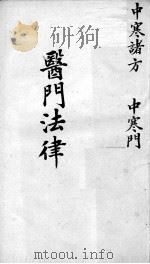 中寒諸方　中寒門
醫門法律
mtoou.info